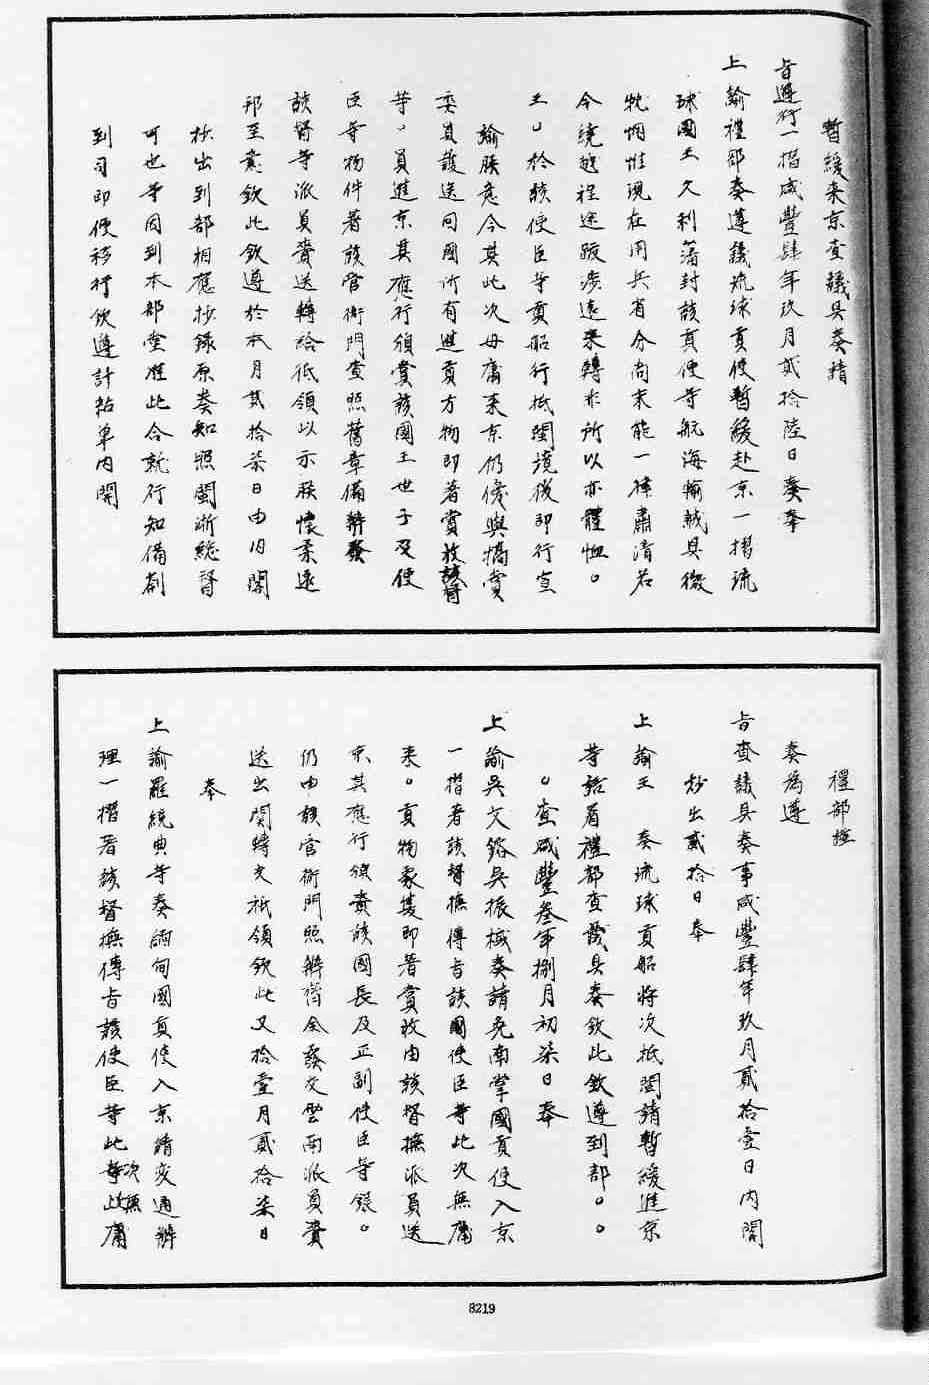 暫緩来京查議具奏請
旨遵行一摺咸豐肆年玖月貳拾陸日奏奉
上諭禮部奏遵議琉球貢使暫緩赴京一摺琉
球國王久列藩封該貢使等航海輸誠具徵
忱悃惟現在用兵省分尚未能一律肅清若
令繞越程途跋涉遠来轉非所以示體恤。
王。於該使臣等貢船行抵閩境後即行宣
諭朕意令其此次毋庸来京仍優與犒賞
委員護送回國所有進貢方物即著賞收該督
等。員進京其應行頒賞該國王世子及使
臣等物件著該管衙門查照舊章備辦發
該督等派員賫送轉給祗領以示朕懷柔遠
邦至意欽此欽遵於本月貳拾柒日由内閣
抄出到部相應抄錄原奏知照閩浙總督
可也等因到本部堂准此合就行知備劄
到司即便移行欽遵計粘單内開
禮部謹
奏為遵
旨查議具奏事咸豐肆年玖月貳拾壹日内閣
抄出貳拾日奉
上諭王 奏琉球貢船將次抵閩請暫緩進京
等語着禮部查議具奏欽此欽遵到部。。
。查咸豐叁年捌月初柒日奉
上諭吳文鎔吳振棫奏請免南掌國貢使入京
一摺著該督撫傳旨該國使臣等此次無庸
来。貢物象隻即著賞收由該督撫派員送
京其應行頒賞該國長及正副使臣等銀。
仍由該管衙門照辦齊全發交雲南派員賫
送出関轉交祗領欽此又拾壹月貳拾柒日
奉
上諭羅繞典等奏緬甸國貢使入京請変通辦
理一摺著該督撫傳旨該使臣等此次無庸
8219